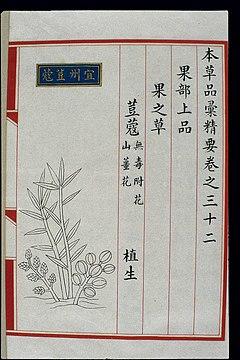 本草品彙精要卷之三十二
果部上品
果之草
荳蔻
無毒附花
山薑花
植生
宜州荳蔻